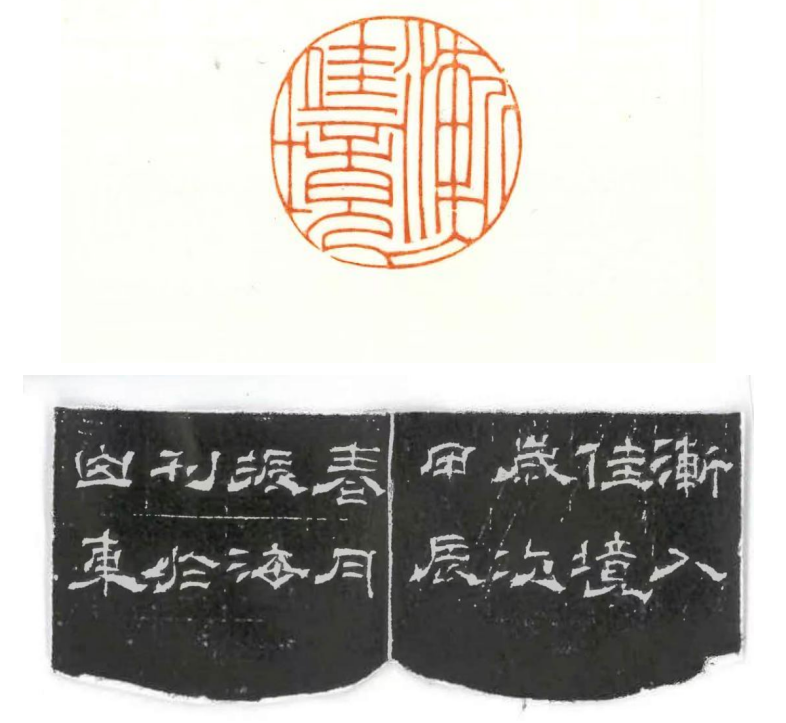 漸入
佳境
漸入
佳境
歲次
甲辰
春月
振海
刊於
囪東